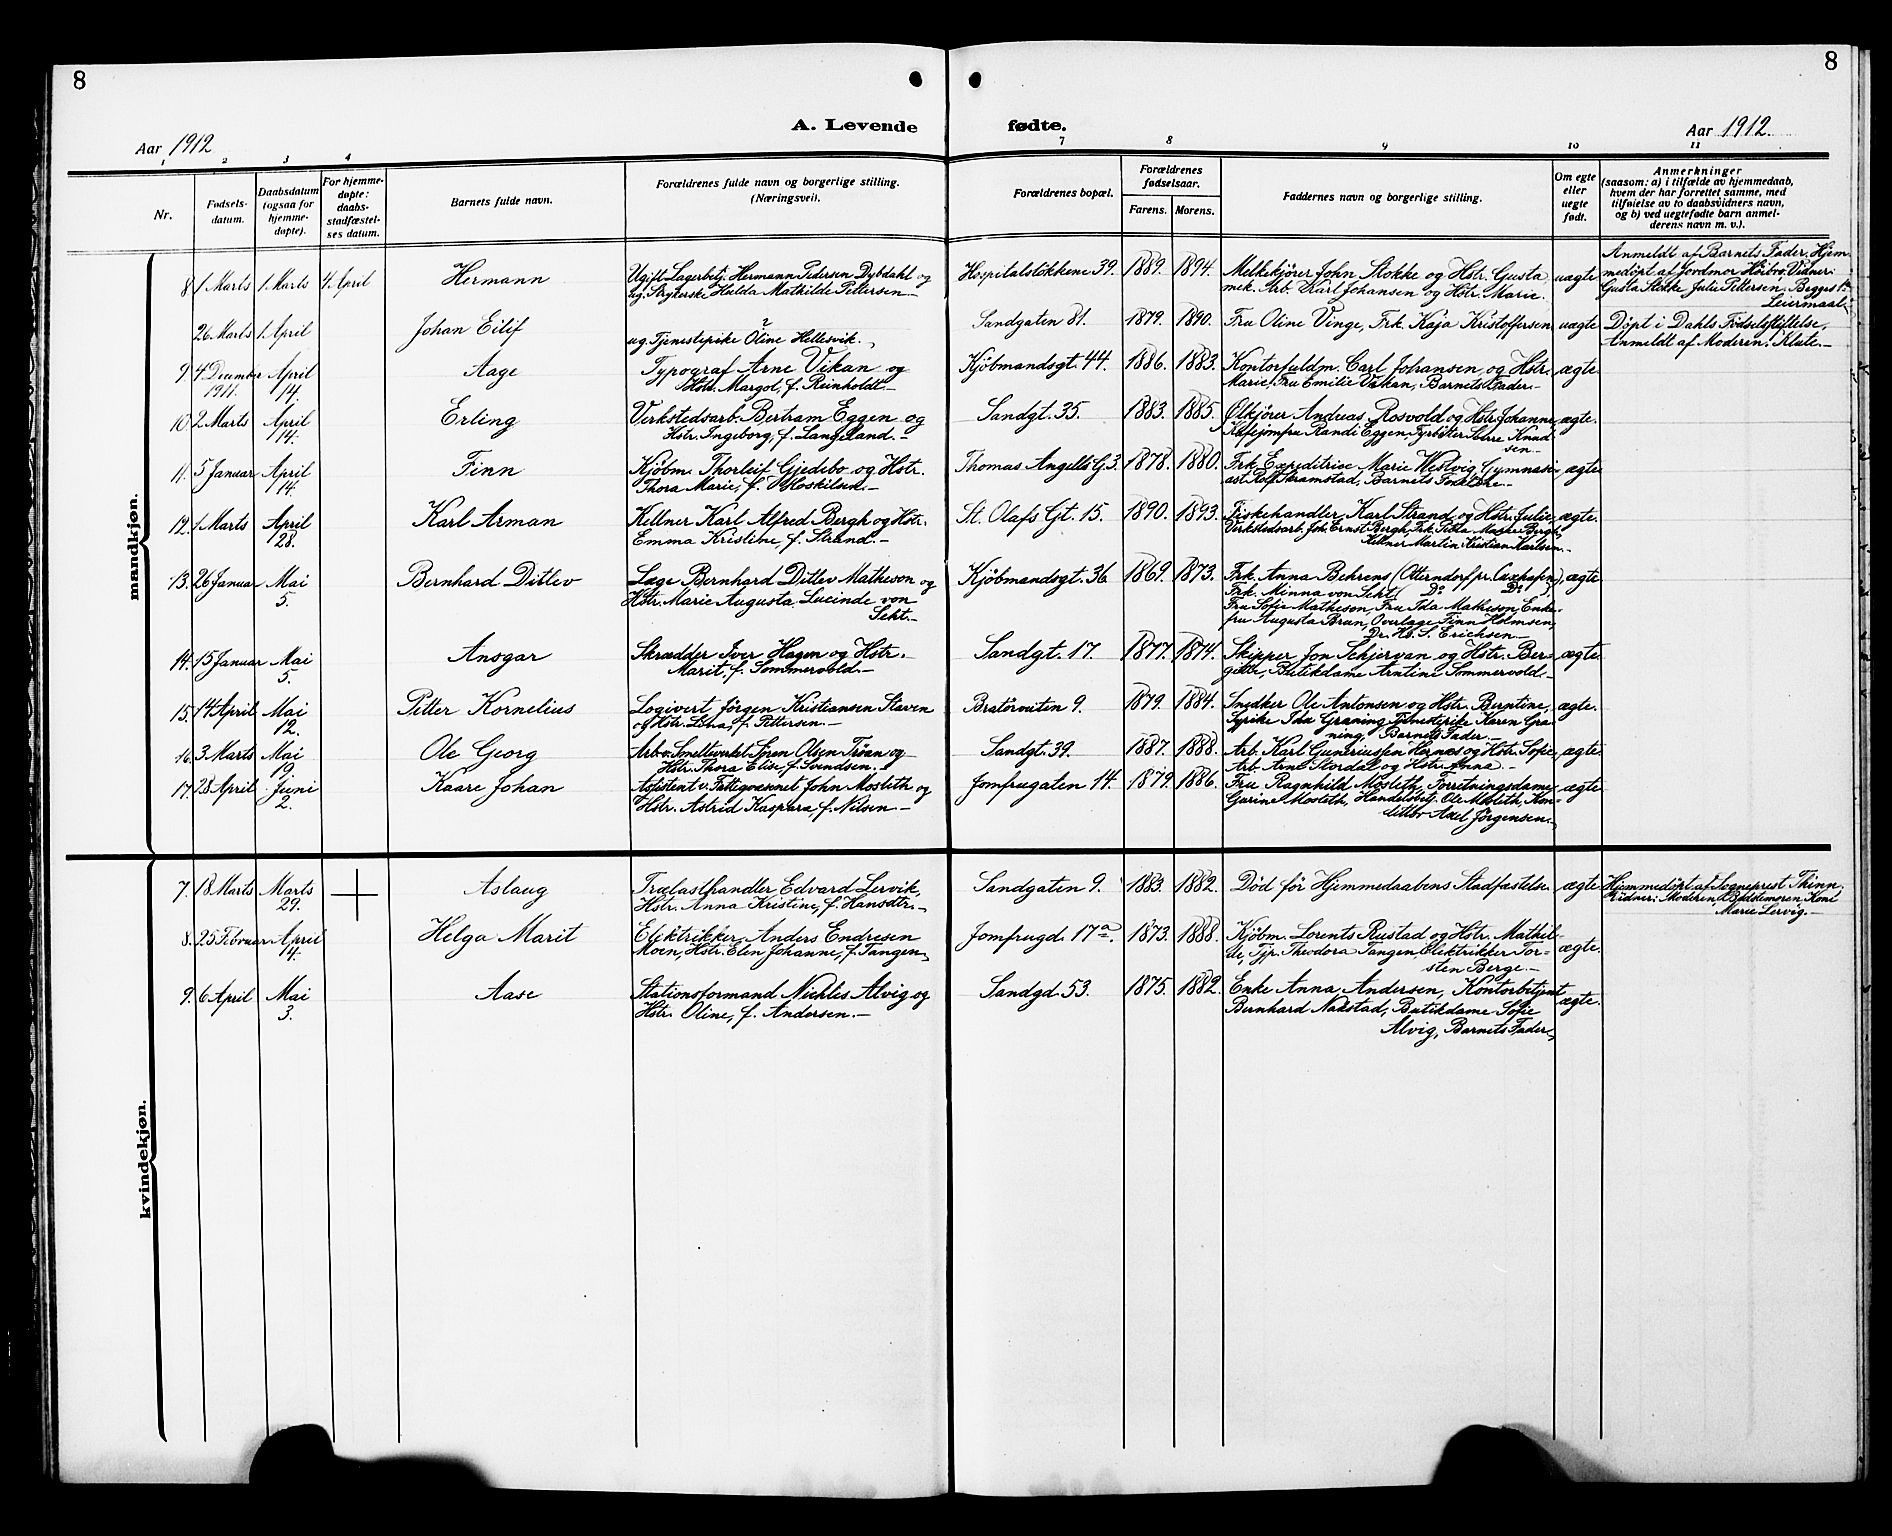 8
8
A. Levende fødte.
Aar 1912
Aar 1912.
1 2 3 4 7 8 9 10 11
Nr.
Fødsels-
datum.
Daabsdatum
(ogsaa for
hjemme-
døpte).
For hjemme-
døpte:
daabs-
stadfæstel-
ses datum.
Barnets fulde navn.
Forældrenes fulde navn og borgerlige stilling.
(Næringsvei).
Forældrenes bopæl.
Forældrenes
fødselsaar.
Farens. Morens.
Faddernes navn og borgerlige stilling.
Om egte
eller
uegte
født.
Anmerkninger
(saasom: a) i tilfælde av hjemmedaab,
hvem der har forrettet samme, med
tilføielse av to daabsvidners navn,
og b) ved uegtefødte barn anmel-
derens navn m. v.).
mandkjøn.
8 1 Marts 1 Marts 4 April Hermann
Ugift Lagerbetj. Hermann Pedersen Dybdahl og
ug. Strykerske Hulda Mathilde Pettersen
Hospitalsløkkene 39. 1889. 1894.
Melkekjører John Stokke og Hstr. Gusta
mek. Arb. Karl Johansen og Hstr. Marie.
uægte
Anmeldt af Barnets Fader. Hjem-
medøpt af Jordmor Høibro. Vidner:
Gusta Stokke, Julie Pettersen. Begges 1ste
Leiermaal.
26 Marts 1 April Johan Eilif
?
ug. Tjenestepike Oline Hellesvik.
Sandgaten 81. 1879. 1890.
Fru Oline Vinge, Frk. Kaja Kristoffersen
uægte
Døpt i Dahls Fødselsstiftelse.
Anmeldt af Moderen.
9 4 December April Aage
1911. 14.
Typograf Arne Vikan og
Hstr. Margot, f. Reinholdt
Kjøbmandsgt. 44. 1886. 1883.
Kontorfuldm. Carl Johansen og Hstr.
Marie, Fru Emilie Vikan, Barnets Fader.
ægte
10. 2 Marts April Erling
14.
Verkstedsarb. Bertram Eggen og
Hstr. Ingeborg, f. Langland.
Sandgt. 35. 1883. 1885.
Ølkjører Andreas Rosvold og Hstr. Johanne
Kafejomfru Randi Eggen, Fyrbøter Sverre Knud-
sen
ægte.
11. 5 Januar April Finn
14.
Kjøbm. Thorleif Gjedebo og Hstr.
Thora Marie, f. Roskilsen.
Thomas Angells G. 3. 1878. 1880.
Frk. Expeditrise Marie Westvig, Gymnasi-
ast Rolf Skramstad, Barnets Forældre.
ægte.
12. 1 Marts April Karl Arman
28.
Kellner Karl Alfred Bergh og Hstr.
Emma Kristine, f. Strand.
St. Olafs Gt. 15. 1890. 1893.
Fiskehandler Karl Strand og Hstr. Julie,
Verkstedsarb. Joh. Ernst Bergh, Frk. Tekla Bergh,
Kellner Martin Kristian Karlsen.
ægte.
13. 26 Januar Mai Bernhard Ditlev
5.
Læge Bernhard Ditlev Matheson og
Hstr. Marie Augusta Lucinde von
Seht.
Kjøbmandsgt. 36 1869. 1873.
Frk. Anna Behrens (Otterndorf pr. Cuxhafen),
Frk. Minna von Seht ( Do Do ),
Fru Sofie Matheson, Fru Ida Matheson, Enke-
fru Augusta Brun, Overlæge Finn Holmsen,
Dr. Hs. S. Erichsen
ægte.
14. 15 Januar Mai Ansgar
5.
Skrædder Iver Hagen og Hstr.
Marit, f. Sommervold.
Sandgt. 17. 1877. 1874.
Skipper Jon Schjervan og Hstr. Ber-
gitte, Butikdame Arntine Sommervold.
ægte.
15. 14 April Mai Petter Kornelius
12.
Logivert Jørgen Kristiansen Staven
og Hstr. Lina, f. Pettersen.
Bratørveiten 9. 1879. 1884.
Snedker Ole Antonsen og Hstr. Berntine,
Sypike Ida Graning, Tjenestepike Karen Gra-
ning, Barnets Fader.
ægte.
16. 3 Marts Mai Ole Georg
19.
Arb. v. Smelteverket Søren Olsen Trøan og
Hstr. Thora Elise, f. Svendsen.
Sandgt. 39. 1887. 1888.
Arb. Karl Gunerius­sen Hernes og Hstr. Sofie,
Arb. Arne Stordal og Hstr. Anna.
ægte.
17. 28 April Juni Kaare Johan
2.
Assistent v. Fattigvæsenet John Mosleth og
Hstr. Astrid Kaspara, f. Nilsen
Jomfrugaten 14. 1879. 1886.
Fru Ragnhild Mosleth, Forretningsdame
Gurine Mosleth, Handelsbetj. Ole Mosleth, Kon-
ditor Axel Jørgensen.
ægte.
kvindekjøn.
7. 18 Marts Marts Aslaug
29.
Trælasthandler Edvard Lervik,
Hstr. Anna Kristine, f. Hansdtr.
Sandgaten 9. 1883. 1882.
Død før Hjemmedaabens Stadfæstelse
ægte
Hjemmedøpt af Sogneprest Thinn.
Vidner: Moderen, Bedstemoren
Marie Lervig.
8. 25 Februar April Helga Marit
14.
Elektrikker Anders Endresen
Moen, Hstr. Elen Johanne, f. Tangen
Jomfrugd. 17a. 1873. 1888.
Kjøbm. Lorents Rustad og Hstr. Mathil-
de, Tjp. Theodora Tangen, Elektrikker Tor-
sten Berge
ægte.
9. 6 April Mai Aase
3.
Stationsformand Nichles Alvig og
Hstr. Oline, f. Andersen.
Sandgd. 53. 1875. 1882.
Enke Anna Andersen, Kontorbetjent
Bernhard Nakstad, Butikdame Sofie
Alvig, Barnets Fader.
ægte.